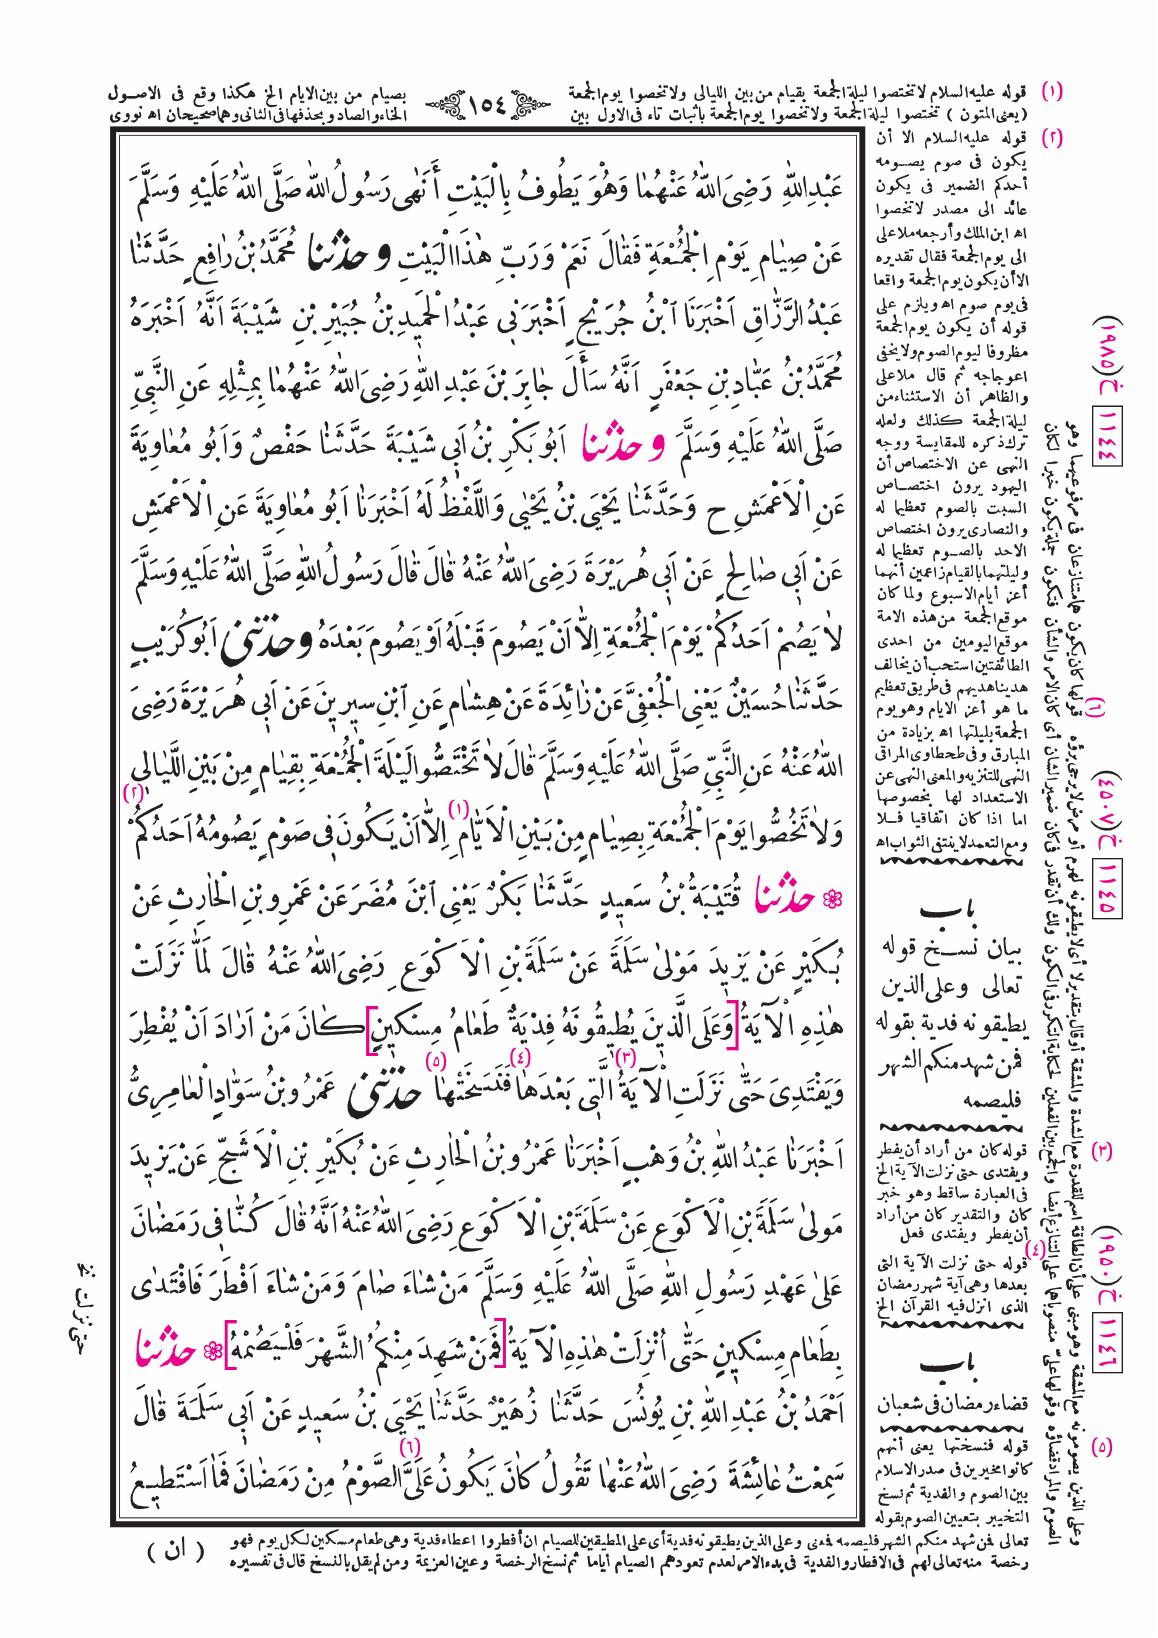 (١) قوله عليه السلام لا تختصوا ليلة الجمعة بقيام من بين الليالى ولا تخصوا يوم الجمعة
١٥٤
بصيام من بين الايام الخ هكذا وقع فى الاصول
(يعنى المتون) تختصوا ليلة الجمعة ولا تخصوا يوم الجمعة باثبات تاء فى الاول بين
الخاء والصاد وبحذفها فى الثانى وهما صحيحان اه نووى
عَبْدِاللهِ رَضِىَ اللهُ عَنْهُمَا وَهُوَ يَطُوفُ بِالْبَيْتِ أَنَهٰى رَسُولُ اللهِ صَلَّى اللهُ عَلَيْهِ وَسَلَّمَ
عَنْ صِيَامِ يَوْمِ الْجُمُعَةِ فَقَالَ نَعَمْ وَرَبِّ هٰذَا الْبَيْتِ و حدثنا مُحَمَّدُ بْنُ رَافِعٍ حَدَّثَنَا
عَبْدُ الرَّزَّاقِ اَخْبَرَنَا ابْنُ جُرَيْجٍ اَخْبَرَنِى عَبْدُ الْحَمِيدِ بْنُ جُبَيْرِ بْنِ شَيْبَةَ اَنَّهُ اَخْبَرَهُ
مُحَمَّدُ بْنُ عَبَّادِ بْنِ جَعْفَرٍ اَنَّهُ سَأَلَ جَابِرَ بْنَ عَبْدِ اللهِ رَضِىَ اللهُ عَنْهُمَا بِمِثْلِهِ عَنِ النَّبِىِّ
صَلَّى اللهُ عَلَيْهِ وَسَلَّمَ و حدثنا اَبُو بَكْرِ بْنُ اَبِى شَيْبَةَ حَدَّثَنَا حَفْصٌ وَاَبُو مُعَاوِيَةَ
عَنِ الْاَعْمَشِ ح وَحَدَّثَنَا يَحْيَى بْنُ يَحْيٰى وَاللَّفْظُ لَهُ اَخْبَرَنَا اَبُو مُعَاوِيَةَ عَنِ الْاَعْمَشِ
عَنْ اَبِى صَالِحٍ عَنْ اَبِى هُرَيْرَةَ رَضِىَ اللهُ عَنْهُ قَالَ قَالَ رَسُولُ اللهِ صَلَّى اللهُ عَلَيْهِ وَسَلَّمَ
لَا يَصُمْ اَحَدُكُمْ يَوْمَ الْجُمُعَةِ اِلَّا اَنْ يَصُومَ قَبْلَهُ اَوْ يَصُومَ بَعْدَهُ و حدثنى اَبُو كُرَيْبٍ
حَدَّثَنَا حُسَيْنٌ يَعْنِى الْجُعْفِىَّ عَنْ زَائِدَةَ عَنْ هِشَامٍ عَنِ ابْنِ سِيرِينَ عَنْ اَبِى هُرَيْرَةَ رَضِىَ
اللهُ عَنْهُ عَنِ النَّبِىِّ صَلَّى اللهُ عَلَيْهِ وَسَلَّمَ قَالَ لَا تَخْتَصُّوا لَيْلَةَ الْجُمُعَةِ بِقِيَامٍ مِنْ بَيْنِ اللَّيَالِى
وَلَا تَخُصُّوا يَوْمَ الْجُمُعَةِ بِصِيَامٍ مِنْ بَيْنِ الْاَيَّامِ (١) اِلَّا اَنْ يَكُونَ فِى صَوْمٍ يَصُومُهُ اَحَدُكُمْ (٢)
❁ حدثنا قُتَيْبَةُ بْنُ سَعِيدٍ حَدَّثَنَا بَكْرٌ يَعْنِى ابْنَ مُضَرَ عَنْ عَمْرِو بْنِ الْحَارِثِ عَنْ
بُكَيْرٍ عَنْ يَزِيدَ مَوْلٰى سَلَمَةَ عَنْ سَلَمَةَ بْنِ الْاَكْوَعِ رَضِىَ اللهُ عَنْهُ قَالَ لَمَّا نَزَلَتْ
هٰذِهِ الْآيَةُ [وَعَلَى الَّذِينَ يُطِيقُونَهُ فِدْيَةٌ طَعَامُ مِسْكِينٍ] كَانَ مَنْ اَرَادَ اَنْ يُفْطِرَ
وَيَفْتَدِىَ حَتّٰى نَزَلَتِ الْآيَةُ (٣) الَّتِى بَعْدَهَا (٤) فَنَسَخَتْهَا (٥) حدثنى عَمْرُو بْنُ سَوَّادٍ الْعَامِرِىُّ
اَخْبَرَنَا عَبْدُ اللهِ بْنُ وَهْبٍ اَخْبَرَنَا عَمْرُو بْنُ الْحَارِثِ عَنْ بُكَيْرِ بْنِ الْاَشَجِّ عَنْ يَزِيدَ
مَوْلٰى سَلَمَةَ بْنِ الْاَكْوَعِ عَنْ سَلَمَةَ بْنِ الْاَكْوَعِ رَضِىَ اللهُ عَنْهُ اَنَّهُ قَالَ كُنَّا فِى رَمَضَانَ
عَلٰى عَهْدِ رَسُولِ اللهِ صَلَّى اللهُ عَلَيْهِ وَسَلَّمَ مَنْ شَاءَ صَامَ وَمَنْ شَاءَ اَفْطَرَ فَافْتَدٰى
بِطَعَامِ مِسْكِينٍ حَتّٰى اُنْزِلَتْ هٰذِهِ الْآيَةُ [فَمَنْ شَهِدَ مِنْكُمُ الشَّهْرَ فَلْيَصُمْهُ] ❁ حدثنا
اَحْمَدُ بْنُ عَبْدِ اللهِ بْنِ يُونُسَ حَدَّثَنَا زُهَيْرٌ حَدَّثَنَا يَحْيَى بْنُ سَعِيدٍ عَنْ اَبِى سَلَمَةَ قَالَ
سَمِعْتُ عَائِشَةَ رَضِىَ اللهُ عَنْهَا تَقُولُ كَانَ يَكُونُ عَلَىَّ (٦) الصَّوْمُ مِنْ رَمَضَانَ فَمَا اَسْتَطِيعُ
(٢) قوله عليه السلام الا أن
يكون فى صوم يصومه
أحدكم الضمير فى يكون
عائد الى مصدر لا تخصوا
اه ابن الملك وأرجعه ملا على
الى يوم الجمعة فقال تقديره
الا أن يكون يوم الجمعة واقعا
فى يوم صوم اه ويلزم على
قوله أن يكون يوم الجمعة
مظروفا ليوم الصوم ولا يخفى
اعوجاجه ثم قال ملا على
والظاهر أن الاستثناء من
ليلة الجمعة كذلك ولعله
ترك ذكره للمقايسة ووجه
النهى عن الاختصاص أن
اليهود يرون اختصاص
السبت بالصوم تعظيما له
والنصارى يرون اختصاص
الاحد بالصوم تعظيما له
وليلتهما بالقيام زاعمين أنهما
أعز أيام الاسبوع ولما كان
موقع الجمعة من هذه الامة
موقع اليومين من احدى
الطائفتين استحب أن يخالف
هدينا هديهم فى طريق تعظيم
ما هو أعز الايام وهو يوم
الجمعة بليلتها اه بزيادة من
المبارق وفى طحطاوى المراقى
النهى للتنزيه والمعنى النهى عن
الاستعداد لها بخصوصها
اما اذا كان اتفاقيا فلا
ومع التعمد لا ينتفى الثواب اه
باب
بيان نسخ قوله
تعالى وعلى الذين
يطيقونه فدية بقوله
فمن شهد منكم الشهر
فليصمه
(٣) قوله كان من أراد أن يفطر
ويفتدى حتى نزلت الآية الخ
فى العبارة ساقط وهو خبر
كان والتقدير كان من أراد
أن يفطر ويفتدى فعل
(٤) قوله حتى نزلت الآية التى
بعدها وهى آية شهر رمضان
الذى انزل فيه القرآن الخ
باب
قضاء رمضان فى شعبان
(٥) قوله فنسختها يعنى أنهم
كانوا مخيرين فى صدر الاسلام
بين الصوم والفدية ثم نسخ
التخيير بتعيين الصوم بقوله
تعالى فمن شهد منكم الشهر فليصمه فمعنى وعلى الذين يطيقونه فدية أى على المطيقين للصيام ان أفطروا اعطاء فدية وهى طعام مسكين لكل يوم فهو
رخصة منه تعالى لهم فى الافطار والفدية فى بدء الامر لعدم تعودهم الصيام أياما ثم نسخ الرخصة وعين العزيمة ومن لم يقل بالنسخ قال فى تفسيره
( ان )
(١٩٨٥) خ ١١٤٤
(٤٥٠٧) خ ١١٤٥
(١٩٥٠) خ ١١٤٦
(٦)
حتى نزلت نخ